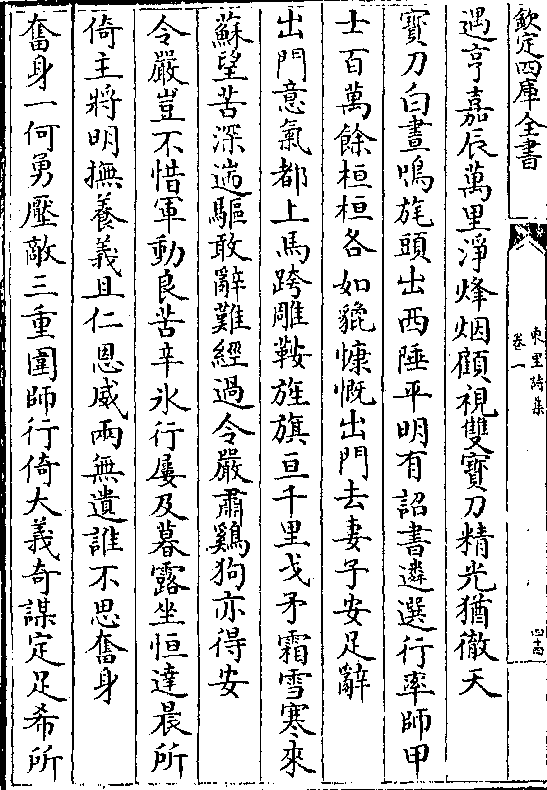 欽定四庫全書
東里詩集
卷一
四十四
遇亨嘉辰萬里淨烽烟顧視雙寳刀精光猶徹天
寳刀白晝鳴旄頭出西陲平明有詔書遴選行率師甲
士百萬餘桓桓各如貔慷慨出門去妻子安足辭
出門意氣都上馬跨雕鞍旌旗亘千里戈矛霜雪寒來
蘇望苦深遄驅敢辭難經過令嚴肅鷄狗亦得安
令嚴豈不惜軍動良苦辛氷行屢及暮露坐恒達晨所
倚主將明撫養義且仁恩威兩無遺誰不思奮身
奮身一何勇壓敵三重圍師行倚大義奇謀定足希所